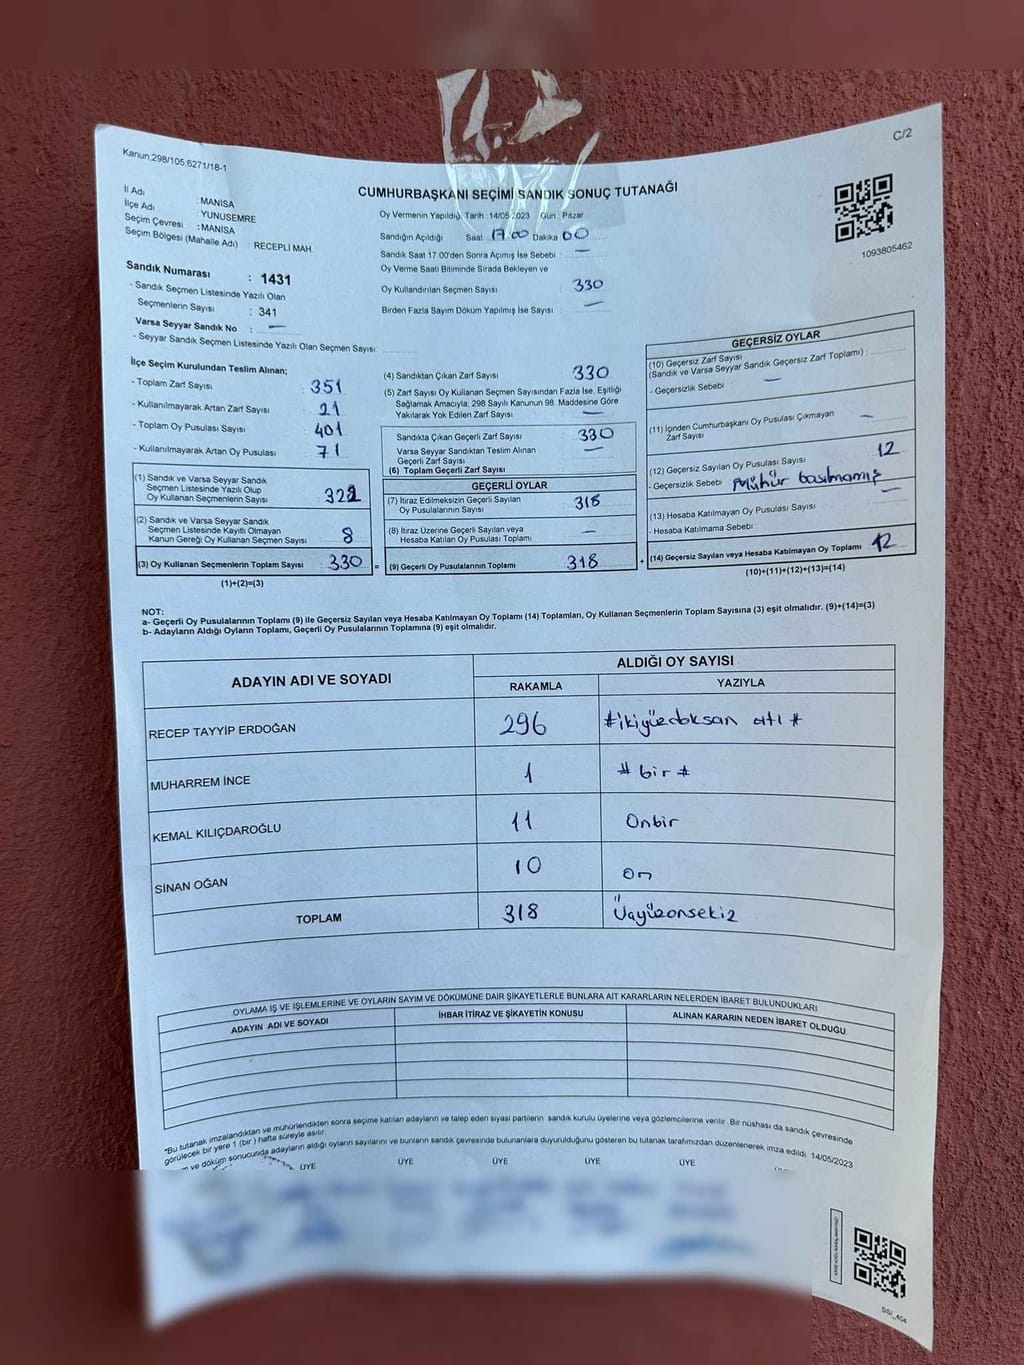 C/2
Kanun;298/105;6271/18-1
CUMHURBAŞKANI SEÇİMİ SANDIK SONUÇ TUTANAĞI
İl Adı : MANİSA
İlçe Adı : YUNUSEMRE
Seçim Çevresi : MANİSA
Seçim Bölgesi (Mahalle Adı) : RECEPLİ MAH
Oy Vermenin Yapıldığı Tarih : 14/05/2023 Gün : Pazar
Sandığın Açıldığı Saat : 17:00 Dakika 00
Sandık Saat 17:00'den Sonra Açımış İse Sebebi : —
Oy Verme Saati Bitiminde Sırada Bekleyen ve
Oy Kullandırılan Seçmen Sayısı : 330
Birden Fazla Sayım Döküm Yapılmış İse Sayısı : —
1093805462
Sandık Numarası : 1431
- Sandık Seçmen Listesinde Yazılı Olan
Seçmenlerin Sayısı : 341
Varsa Seyyar Sandık No : —
- Seyyar Sandık Seçmen Listesinde Yazılı Olan Seçmen Sayısı:
İlçe Seçim Kurulundan Teslim Alınan;
- Toplam Zarf Sayısı : 351
- Kullanılmayarak Artan Zarf Sayısı : 21
- Toplam Oy Pusulası Sayısı : 401
- Kullanılmayarak Artan Oy Pusulası : 71
(1) Sandık ve Varsa Seyyar Sandık
Seçmen Listesinde Yazılı Olup
Oy Kullanan Seçmenlerin Sayısı : 322
(2) Sandık ve Varsa Seyyar Sandık
Seçmen Listesinde Kayıtlı Olmayan
Kanun Gereği Oy Kullanan Seçmen Sayısı : 8
(3) Oy Kullanan Seçmenlerin Toplam Sayısı : 330
(1)+(2)=(3)
(4) Sandıktan Çıkan Zarf Sayısı : 330
(5) Zarf Sayısı Oy Kullanan Seçmen Sayısından Fazla İse, Eşitliği
Sağlamak Amacıyla; 298 Sayılı Kanunun 98. Maddesine Göre
Yakılarak Yok Edilen Zarf Sayısı : —
Sandıkta Çıkan Geçerli Zarf Sayısı : 330
Varsa Seyyar Sandıktan Teslim Alınan
Geçerli Zarf Sayısı : —
(6) Toplam Geçerli Zarf Sayısı :
GEÇERLİ OYLAR
(7) İtiraz Edilmeksizin Geçerli Sayılan
Oy Pusulalarının Sayısı : 318
(8) İtiraz Üzerine Geçerli Sayılan veya
Hesaba Katılan Oy Pusulası Toplamı : —
= (9) Geçerli Oy Pusulalarının Toplamı : 318
GEÇERSİZ OYLAR
(10) Geçersiz Zarf Sayısı
(Sandık ve Varsa Seyyar Sandık Geçersiz Zarf Toplamı) :
- Geçersizlik Sebebi : —
(11) İçinden Cumhurbaşkanı Oy Pusulası Çıkmayan
Zarf Sayısı : —
(12) Geçersiz Sayılan Oy Pusulası Sayısı : 12
- Geçersizlik Sebebi : Mühür basılmamış
(13) Hesaba Katılmayan Oy Pusulası Sayısı : —
- Hesaba Katılmama Sebebi :
+ (14) Geçersiz Sayılan veya Hesaba Katılmayan Oy Toplamı : 12
(10)+(11)+(12)+(13)=(14)
NOT:
a- Geçerli Oy Pusulalarının Toplamı (9) ile Geçersiz Sayılan veya Hesaba Katılmayan Oy Toplamı (14) Toplamları, Oy Kullanan Seçmenlerin Toplam Sayısına (3) eşit olmalıdır. (9)+(14)=(3)
b- Adayların Aldığı Oyların Toplamı, Geçerli Oy Pusulalarının Toplamına (9) eşit olmalıdır.
ADAYIN ADI VE SOYADI ALDIĞI OY SAYISI
RAKAMLA YAZIYLA
RECEP TAYYİP ERDOĞAN 296 #ikiyüzdoksan altı #
MUHARREM İNCE 1 # bir #
KEMAL KILIÇDAROĞLU 11 Onbir
SİNAN OĞAN 10 On
TOPLAM 318 Üçyüzonsekiz
OYLAMA İŞ VE İŞLEMLERİNE VE OYLARIN SAYIM VE DÖKÜMÜNE DAİR ŞİKAYETLERLE BUNLARA AİT KARARLARIN NELERDEN İBARET BULUNDUKLARI
ADAYIN ADI VE SOYADI İHBAR İTİRAZ VE ŞİKAYETİN KONUSU ALINAN KARARIN NEDEN İBARET OLDUĞU
*Bu tutanak imzalandıktan ve mühürlendikten sonra seçime katılan adayların ve talep eden siyasi partilerin sandık kurulu üyelerine veya gözlemcilerine verilir. Bir nüshası da sandık çevresinde
görülecek bir yere 1 (bir) hafta süreyle asılır.
ve döküm sonucunda adayların aldığı oyların sayılarını ve bunların sandık çevresinde bulunanlara duyurulduğunu gösteren bu tutanak tarafımızdan düzenlenerek imza edildi. 14/05/2023
ÜYE ÜYE ÜYE ÜYE ÜYE
SSİ_404